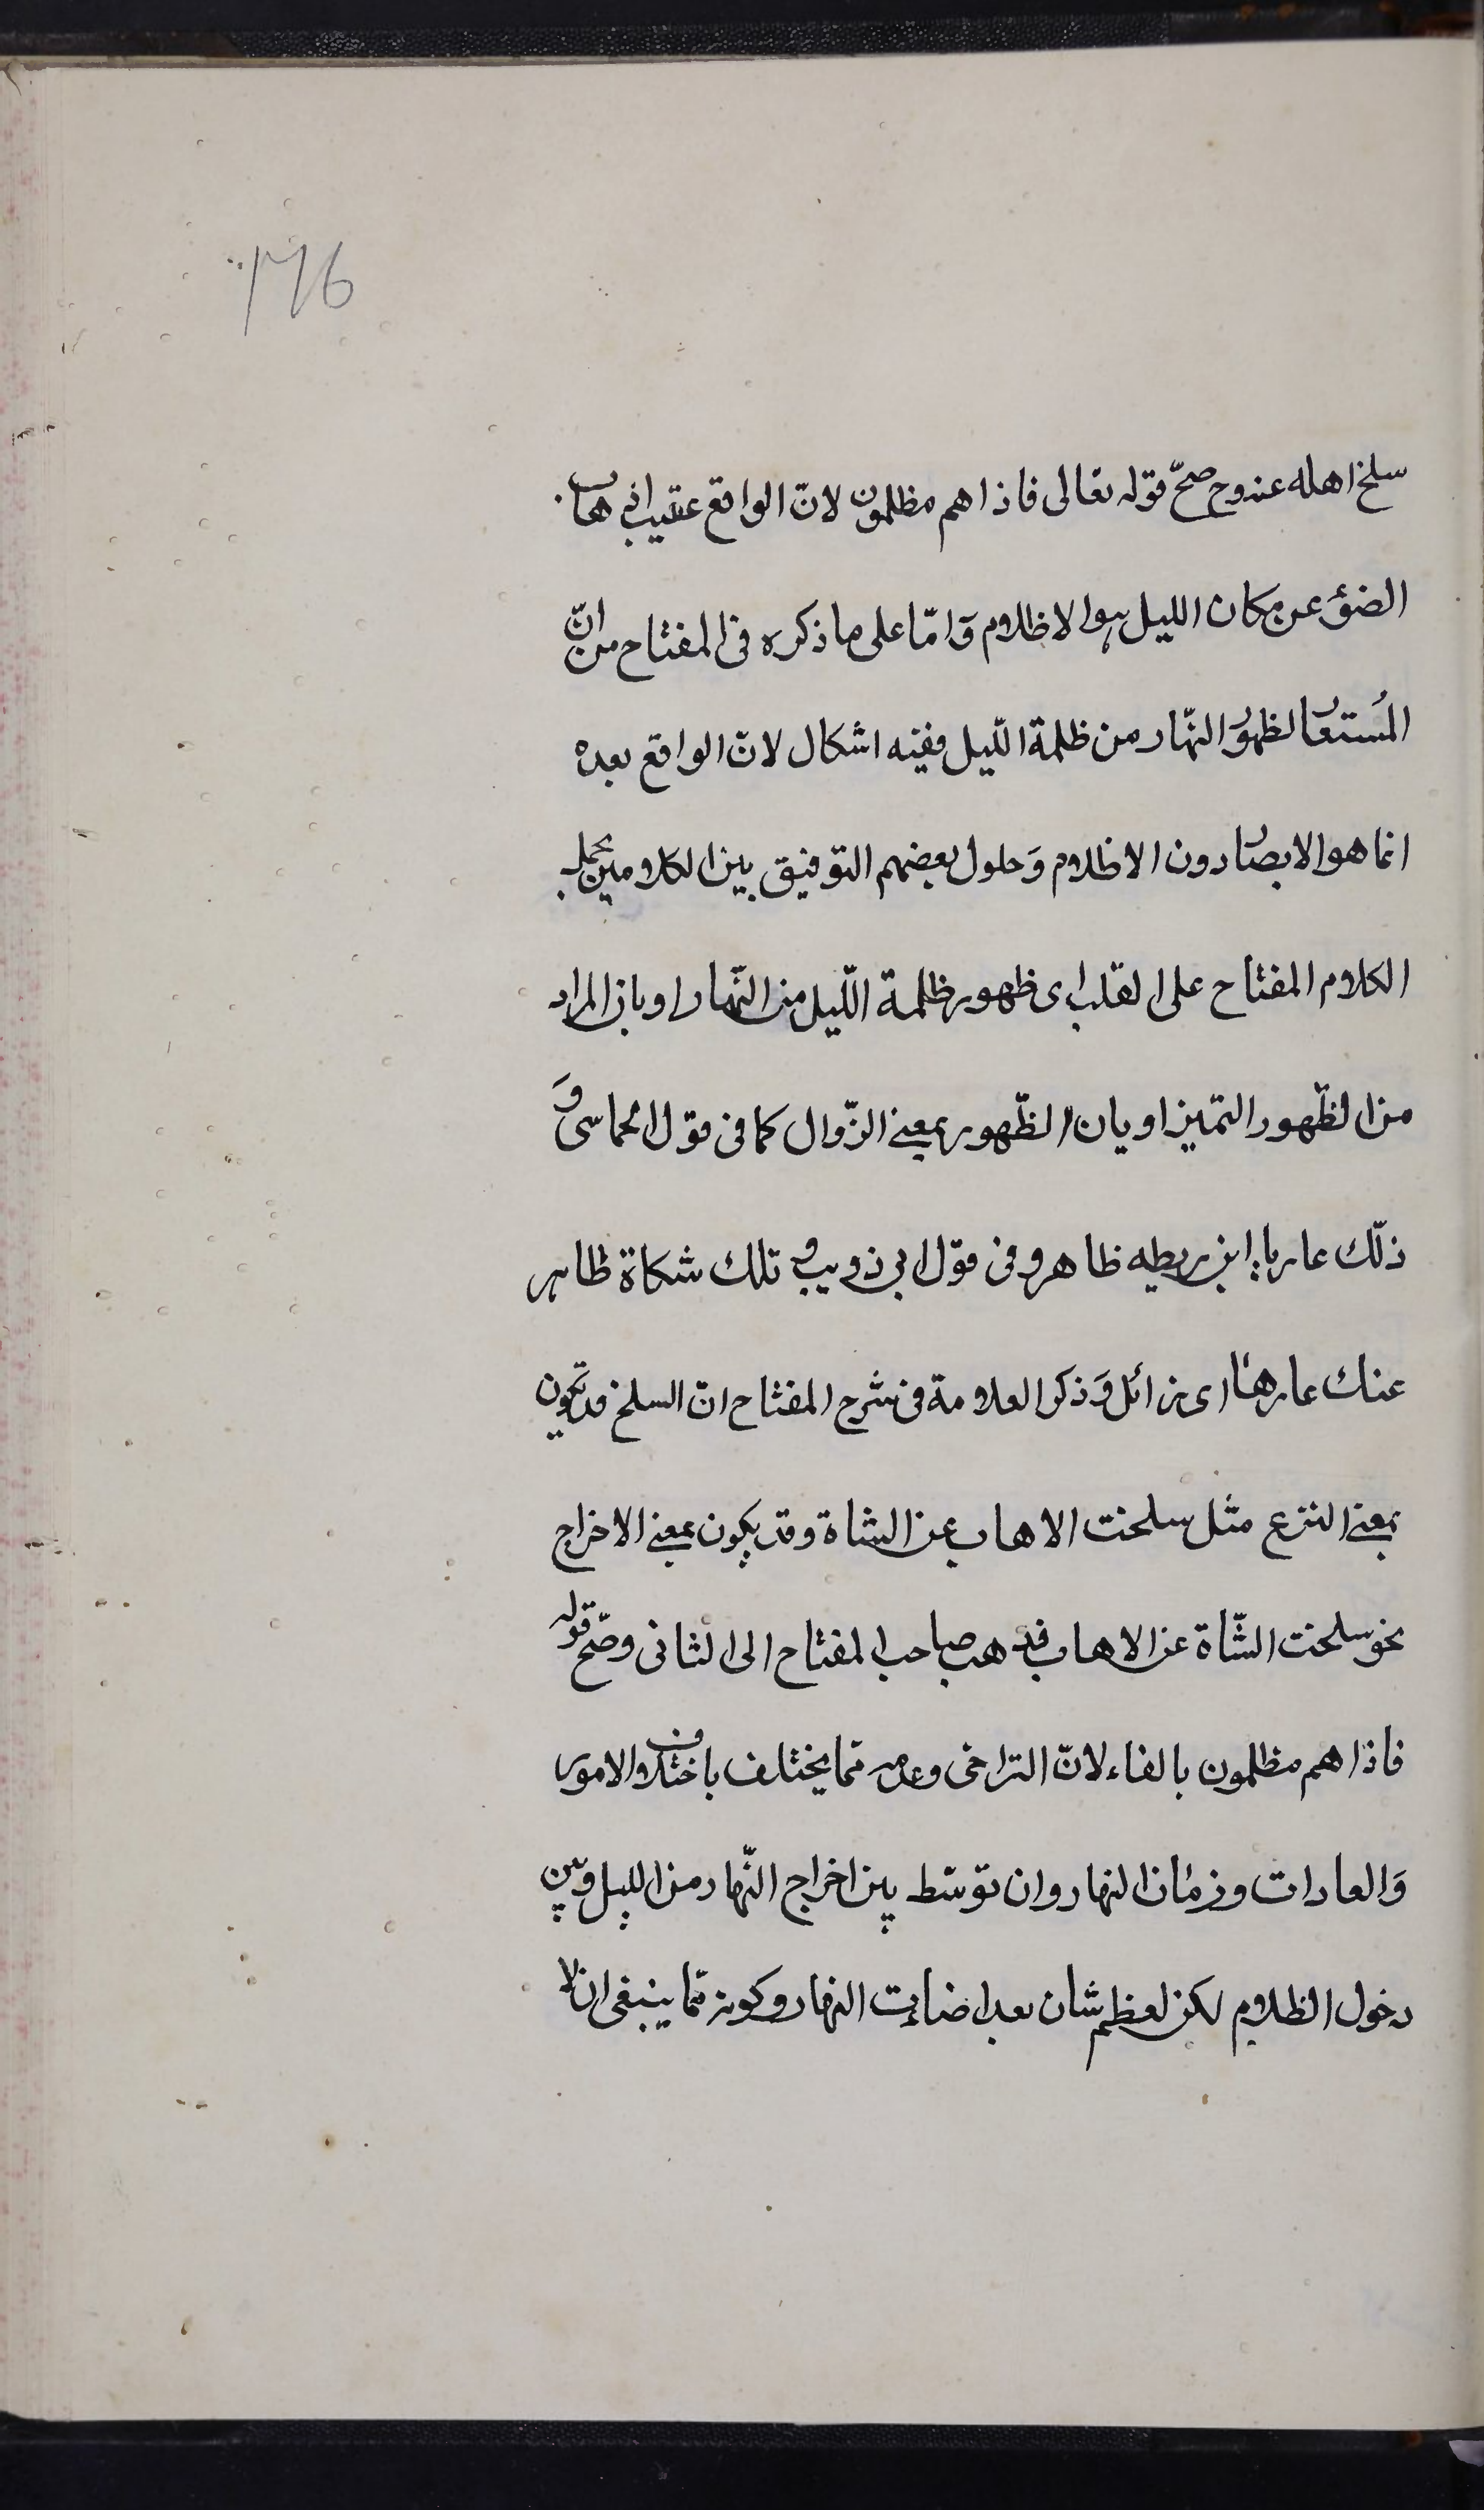 ١٧٦
سلخ اهله عنه وح صحّ قوله تعالى فاذا هم مظلمون لانّ الواقع عقيب اذهاب
الضوء عن مكان الليل هو الاظلام وَامّا على ما ذكره فى المفتاح من انّ
المُستعار لظهُور النّهار من ظلمة اللّيل ففيه اشكال لانّ الواقع بعده
انما هو الابصار دون الاظلام وَحاول بعضهم التوفيق بين الكلامين بحمل
الكلام المفتاح على القلب اى ظهور ظلمة اللّيل من النّهار او بان المراد
من الظّهور التميز او بان الظّهور بمعنى الزّوال كما فى قول الحماسى وَ
ذلّك عار يا ابن ريطه ظاهر وفى قول ابى ذويب و تلك شكاة ظاهر
عنك عارها اى زائل وَذكر العلامة فى شرح المفتاح انّ السلخ قد يكون
بمعنى النزع مثل سلخت الاهاب عن الشاة وقد يكون بمعنى الاخراج
نحو سلخت الشّاة عن الاهاب فذهب صاحب المفتاح الى الثانى وصّح قوله
فاذا هم مظلمون بالفاء لانّ التراخى وعدمه ممّا يختلف باختلاف الامور
وَالعادات وزمان النهار وان توسّط بين اخراج النّهار من الليل وبين
دخول الظلام لكن لعظم شان بعد اضاءت النهار وكونه ممّا ينبغى ان لا